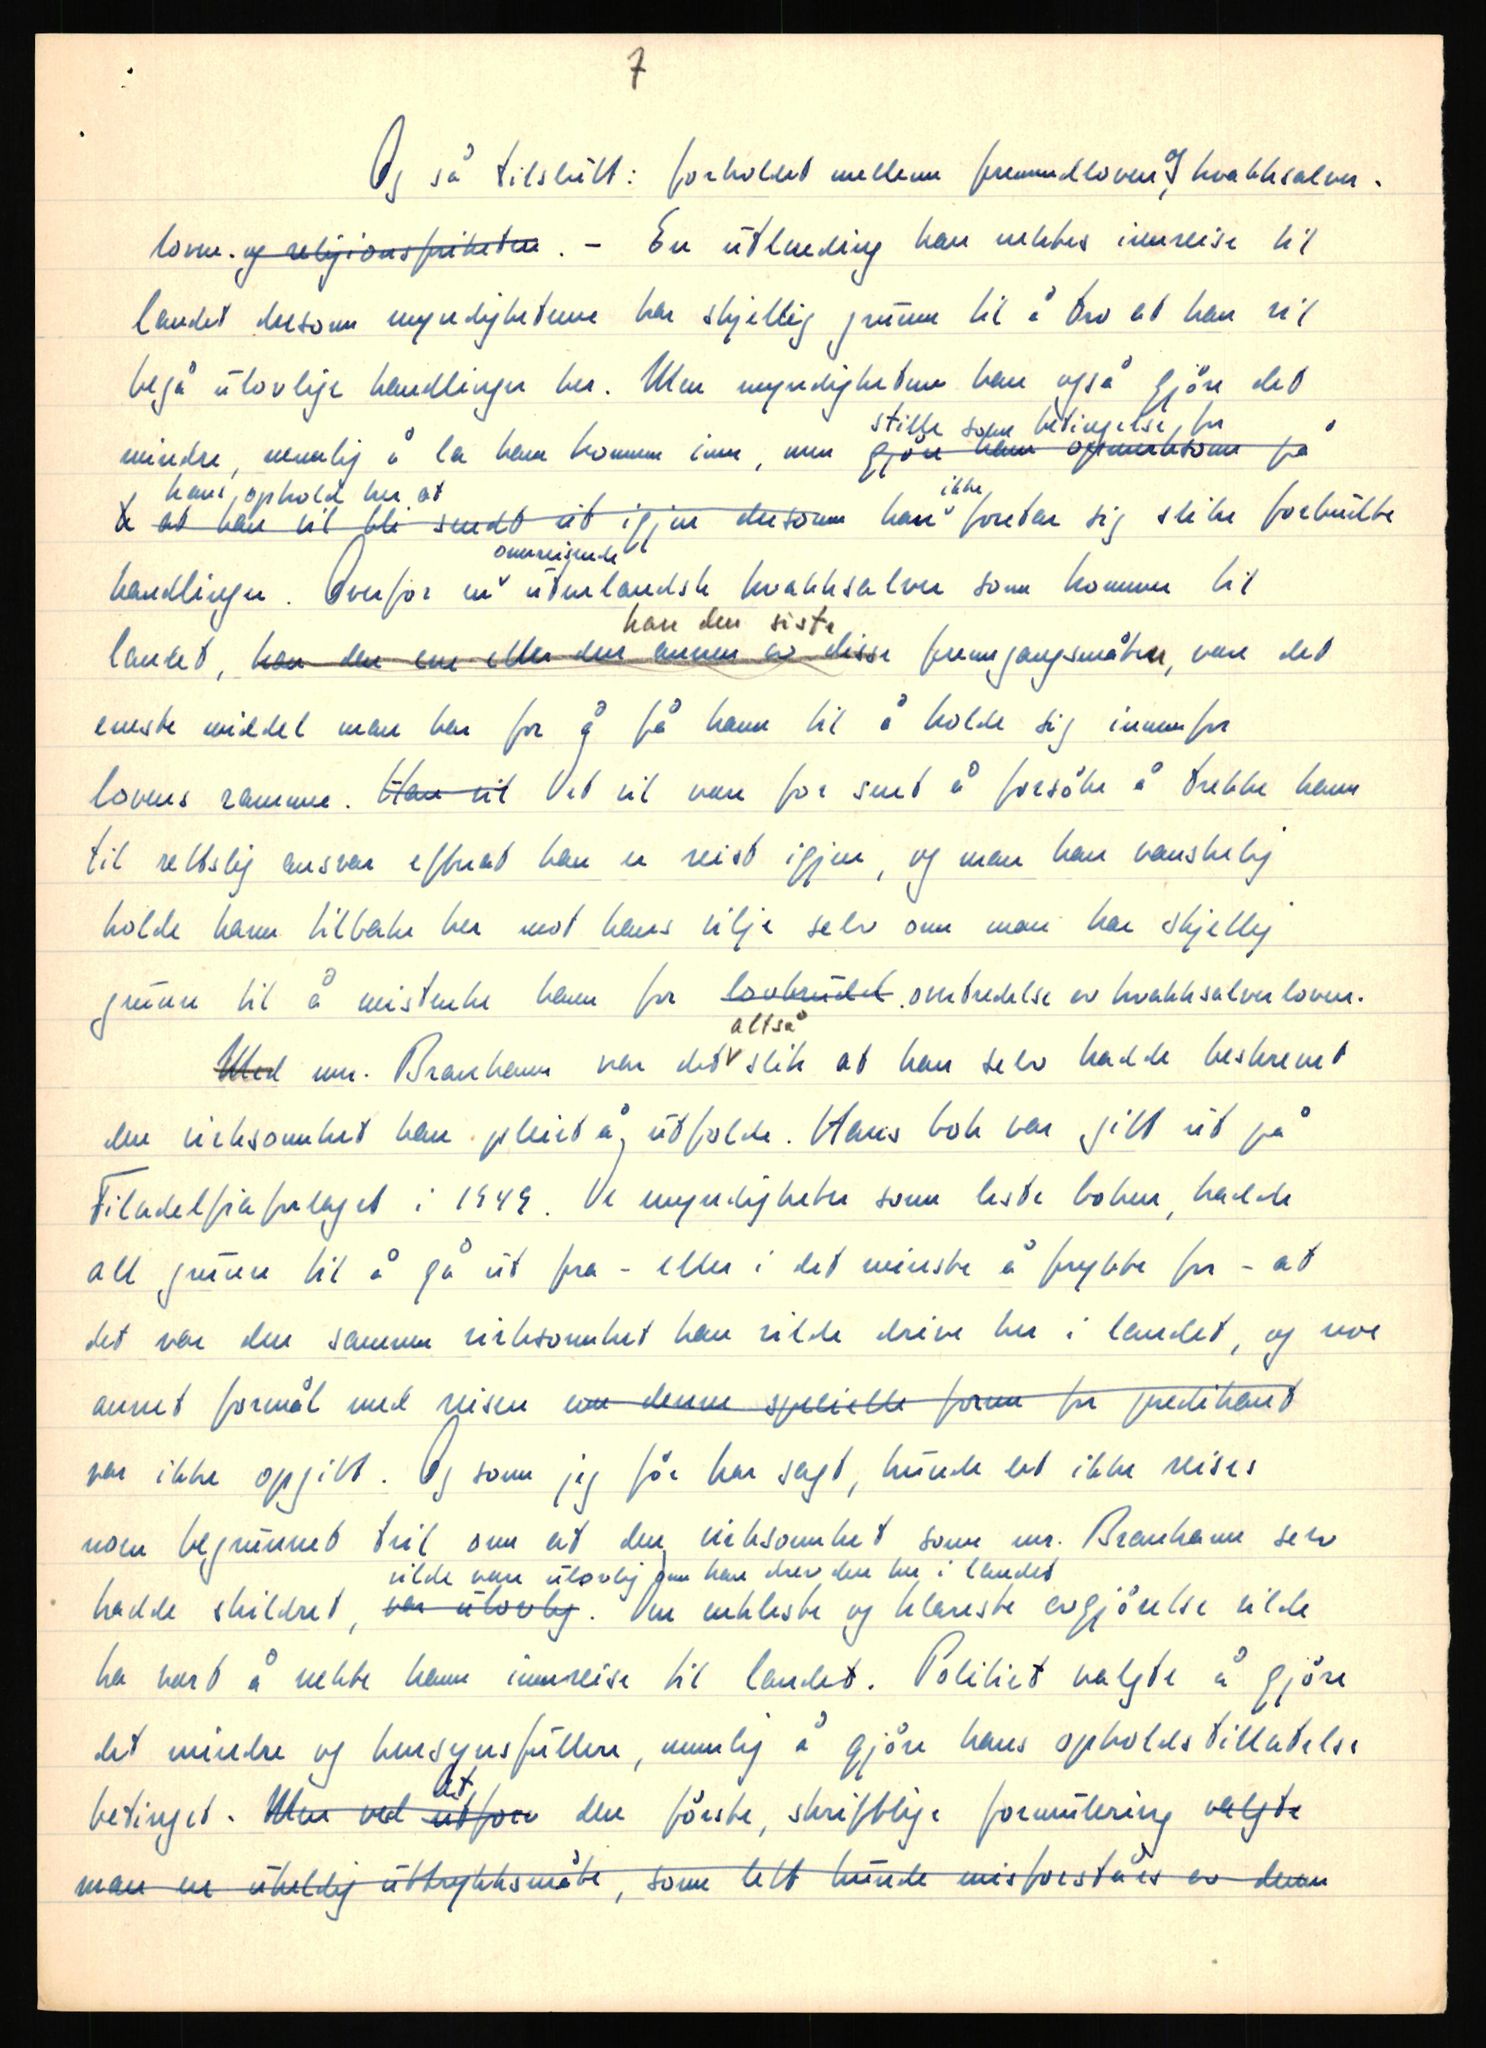 7
Og så tilslutt: forholdet mellem fremmedloven og kvakksalver-
loven. og religionsfriheten. - En utlending kan nektes innreise til
landet dersom myndighetene har skjellig grunn til å tro at han vil
begå ulovlige handlinger her. Men myndighetene kan også gjøre det
stille som betingelse for
mindre, nemlig å la ham komme inn, men gjøre ham opmerksom på
hans ophold her at
at han vil bli sendt ut igjen dersom han ikke foretar sig slike forbudte
omreisende
handlinger. Overfor en utenlandsk kvakksalver som kommer til
kan den siste
landet, kan den ene eller den annen av disse fremgangsmåten, være det
eneste middel man har for å få ham til å holde sig innenfor
lovens ramme. Han vil Det vil være for sent å forsøke å trekke ham
til rettslig ansvar efterat han er reist igjen, og man kan vanskelig
holde ham tilbake her mot hans vilje selv om man har skjellig
grunn til å mistenke ham for lovbrudet overtredelse av kvakksalverloven.
altså
Med mr. Branham var det slik at han selv hadde beskrevet
den virksomhet han pleiet å utfolde. Hans bok var gitt ut på
Filadelfiaforlaget i 1949. De myndigheter som leste boken, hadde
all grunn til å gå ut fra - eller i det minste å frykte for - at
det var den samme virksomhet han vilde drive her i landet, og noe
annet formål med reisen enn denne spesielle form for predikant
var ikke opgitt. Og som jeg før har sagt, kunde det ikke reises
noen begrunnet tvil om at den virksomhet som mr. Branham selv
vilde være ulovlig om han drev den her i landet
hadde skildret, var ulovlig. Den enkleste og klareste avgjørelse vilde
ha vært å nekte ham innreise til landet. Politiet valgte å gjøre
det mindre og hensynsfullere, nemlig å gjøre hans opholdstillatelse
at
betinget. Men ved utforn den første, skriftlige formulering valgte
man en uheldig uttrykksmåte, som lett kunde misforståes av dem